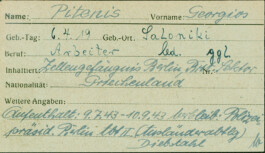 Name: Pitenis Vorname: Georgios
Geb.-Tag: 6.4.19 Geb.-Ort: Saloniki
Beruf: Arbeiter led.
Inhaftiert: Zellengefängnis Berlin
Nationalität: Griechenland
Weitere Angaben:
Aufenthalt: 9.7.43 - 10.9.43 Polizei
präsid. Berlin (Ausländerabtlg)
Diebstahl